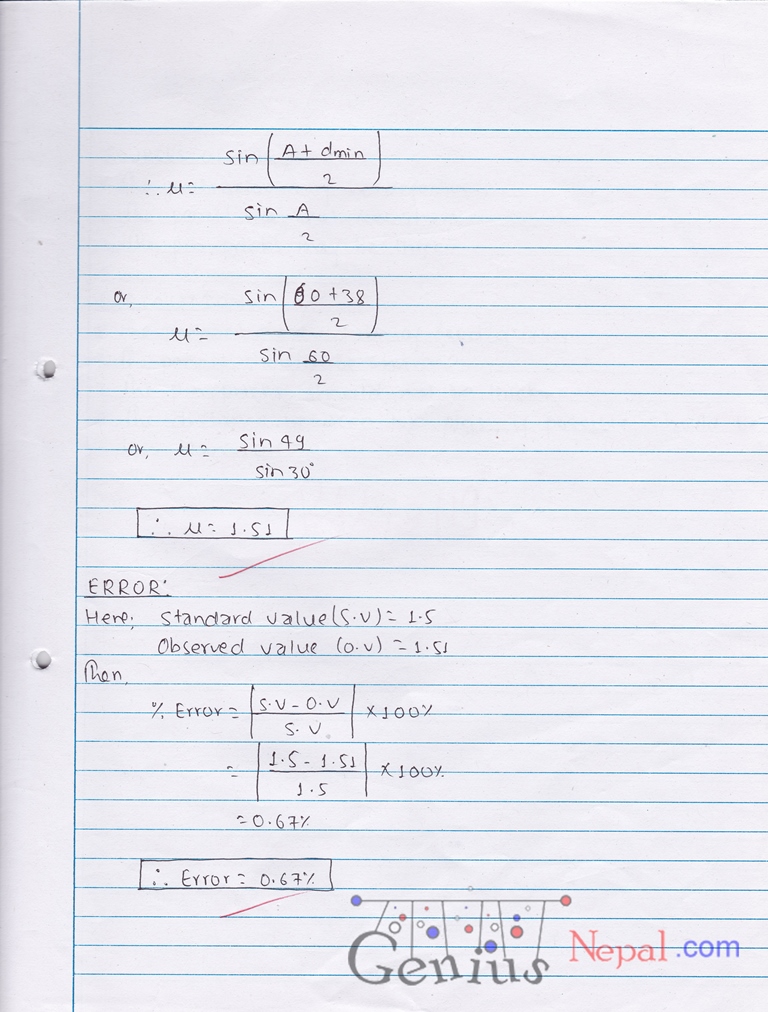 ∴ μ = sin(A + dmin / 2) / sin A/2
or, μ = sin(60 + 38 / 2) / sin 60/2
or, μ = sin 49 / sin 30°
∴ μ = 1.51
ERROR:
Here, Standard value (S.V) = 1.5
Observed value (O.V) = 1.51
Then,
% Error = |S.V - O.V / S.V| × 100%
= |1.5 - 1.51 / 1.5| × 100%
= 0.67%
∴ Error = 0.67%
Genius Nepal.com